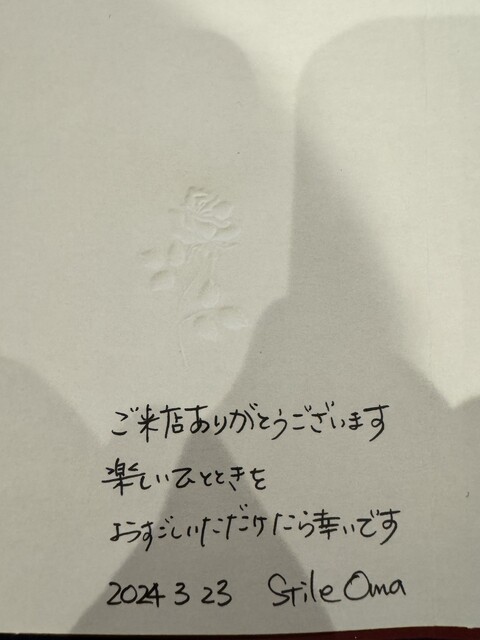 ご来店ありがとうございます
楽しいひとときを
おすごしいただけたら幸いです
2024 3 23 Stile Oma